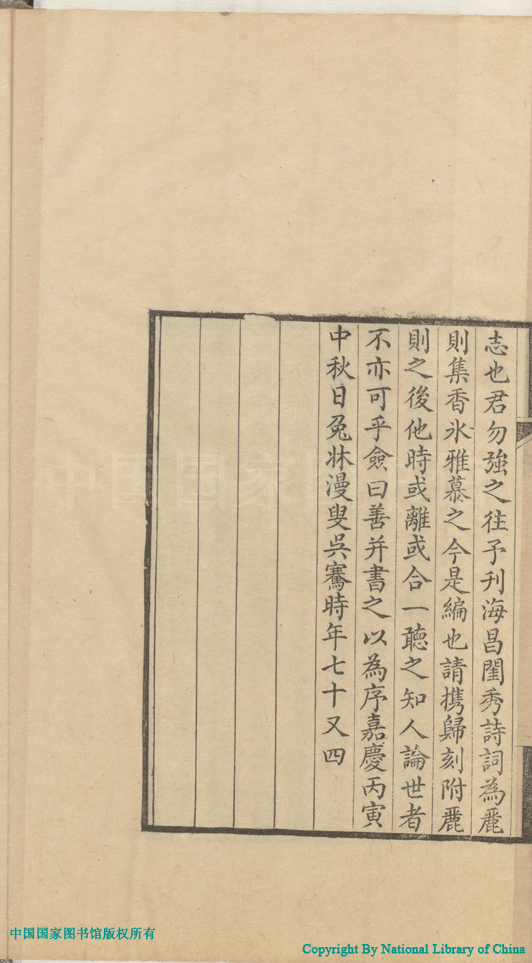 志也君勿強之往予刊海昌閨秀詩詞為麗
則集香氷雅慕之今是編也請携歸刻附麗
則之後他時或離或合一聽之知人論世者
不亦可乎僉曰善并書之以為序嘉慶丙寅
中秋日兔牀漫叟吳騫時年七十又四
中国国家图书馆版权所有
Copyright By National Library of China